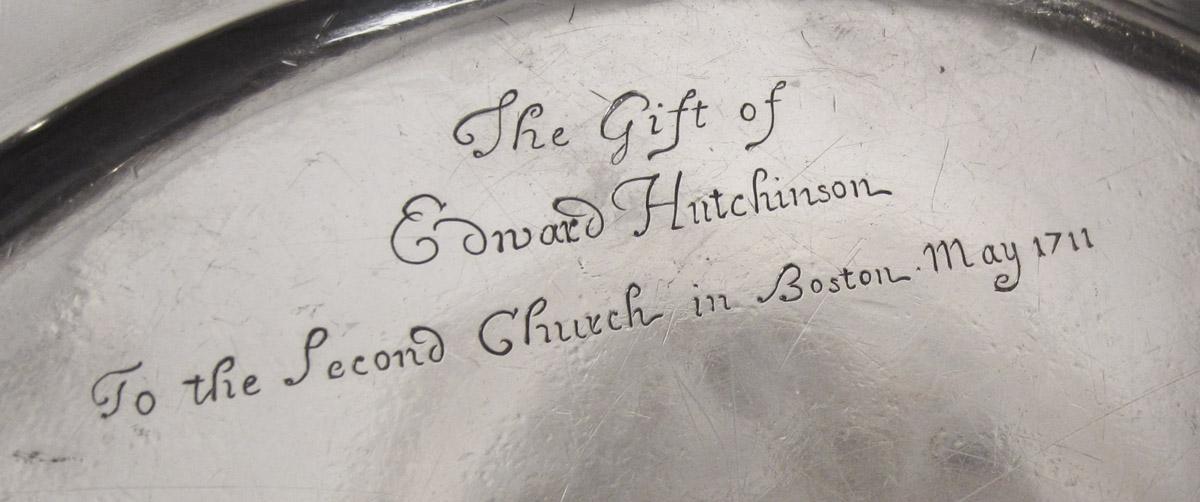 The Gift of
Edward Hutchinson
To the Second Church in Boston. May 1711